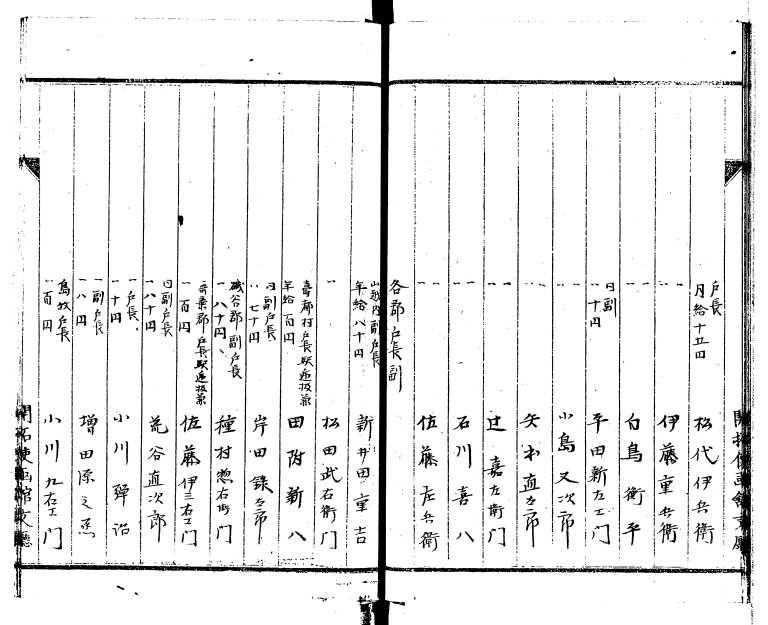 戸長
月給十五円 松代伊兵衛
一 伊藤重兵衛
一 白鳥衛平
同副
一十円 平田新左エ門
一 小島又次郎
一 矢本直右郎
一 辻嘉左衛門
一 石川喜八
一 佐藤庄兵衛
各郡戸長副
山越内副戸長
年給八十円 新井田重吉
一 松田武右衛門
年給百円 田附新八
同副戸長
〃七十円 岸田録右郎
磯谷郡副戸長
一八十円 種村惣右衛門
一百円 佐藤伊三右エ門
同副戸長
一八十円 荒谷直次郎
一戸長
一十円 小川弾治
一副戸長
一八円 増田源之丞
島牧戸長
一百円 小川九右エ門
開拓使函館支廳